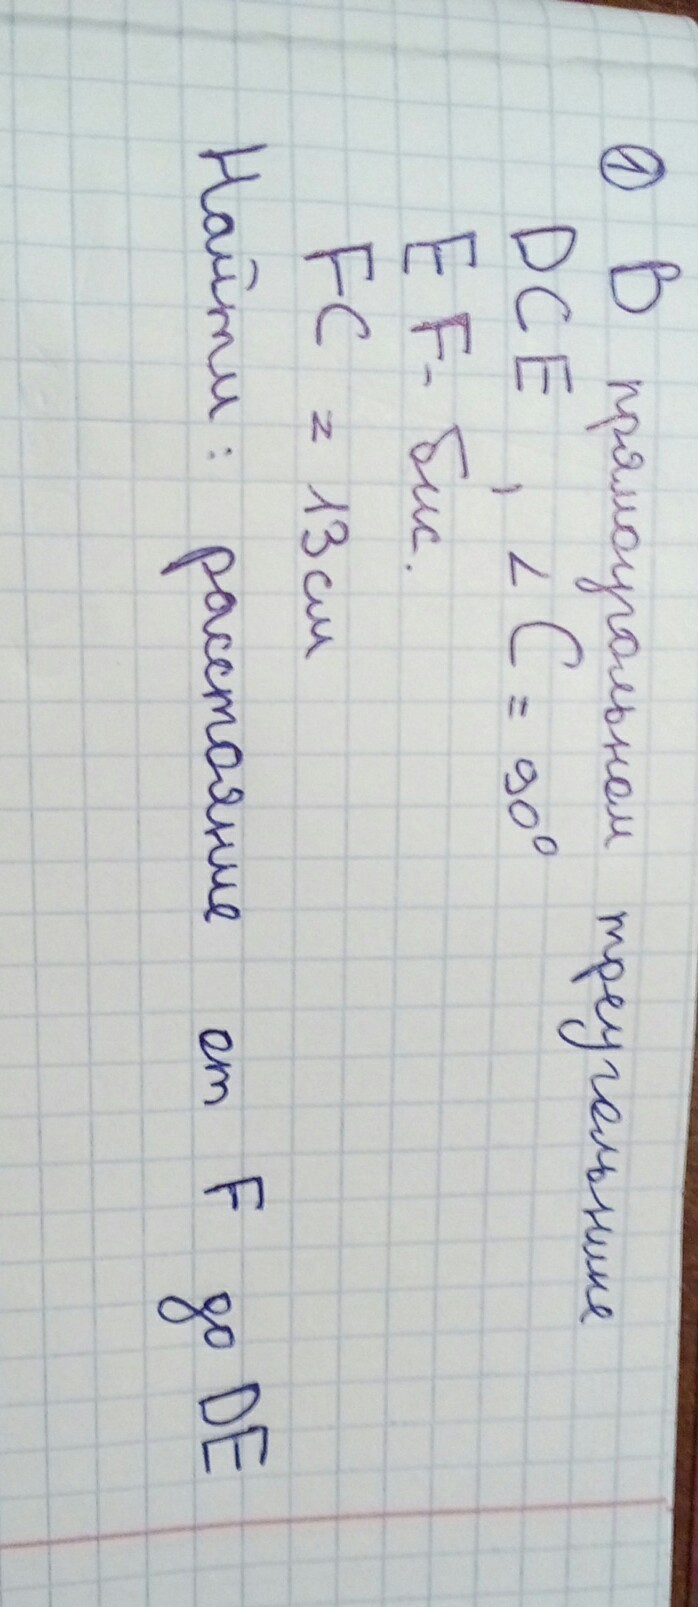 ① В прямоугольном треугольнике
DCE, ∠C = 90°
EF - бис.
FC = 13 см
Найти: расстояние от F до DE